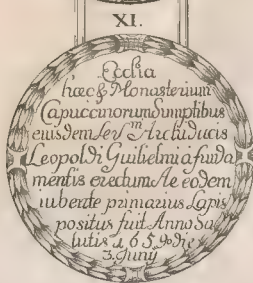 XI.
Ecclia
hæc & Monasterium
Capuccinorum Sumptibus
eiusdem Serᵐⁱ Archiducis
Leopoldi Guilielmi a funda
mentis erectum Ac eodem
iubente primarius Lapis
positus fuit Anno Sa
lutis 1659 die
3. Junÿ